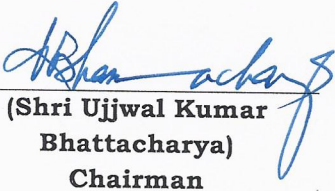 (Shri Ujjwal Kumar
Bhattacharya)
Chairman